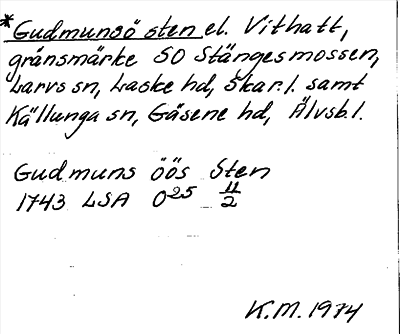 *Gudmunsö sten el. Vithatt,
gränsmärke SO Stängesmossen,
Larvs sn, Laske hd, Skar. l. samt
Källunga sn, Gäsene hd, Älvsb. l.
Gudmuns öös Sten
1743 LSA O25 11/2
K.M. 1974